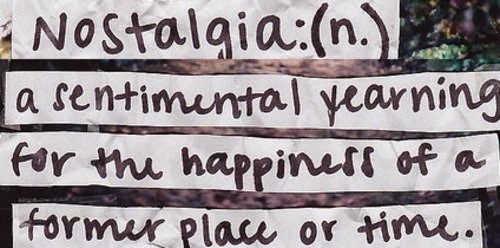 Nostalgia:(n.)
a sentimental yearning
for the happiness of a
former place or time.